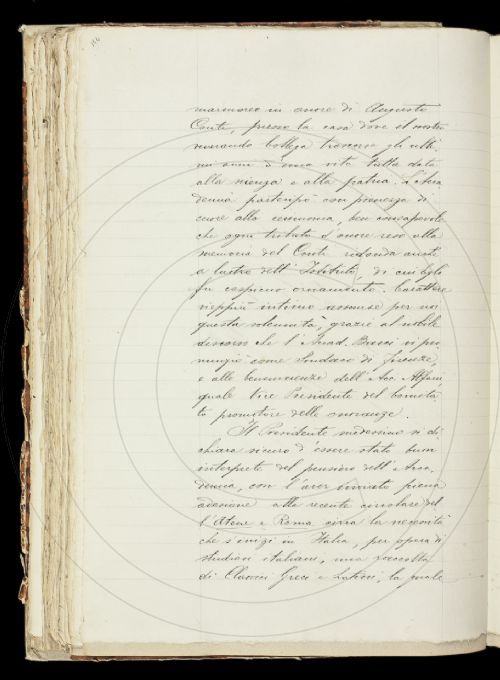 marmoreo in onore di Augusto
Conti, presso la casa dove il nostro
venerando collega trascorse gli ulti-
mi anni d'una vita tutta data
alla scienza e alla patria. L'Acca
demia partecipò con prontezza di
cuore alla cerimonia, ben consapevole
che ogni tributo d'onore reso alla
memoria del Conti ridonda anche
a lustro dell'Istituto, di cui egli
fu cospicuo ornamento. Carattere
vieppiù intimo assunse per noi
questa solennità, grazie al nobile
discorso che l'Accad. Bacci vi pro
nunziò come Sindaco di Firenze,
e alle benemerenze dell'Acc. Alfani
quale Vice Presidente del Comita
to promotore delle onoranze.
Il Presidente medesimo si di
chiara sicuro d'essere stato buon
interprete del pensiero dell'Acca-
demia, con l'aver inviato piena
adesione alla recente circolare del
l'Atene e Roma circa la necessità
che s'inizi in Italia, per opera di
studiosi italiani, una raccolta
di Classici Greci e Latini, la quale